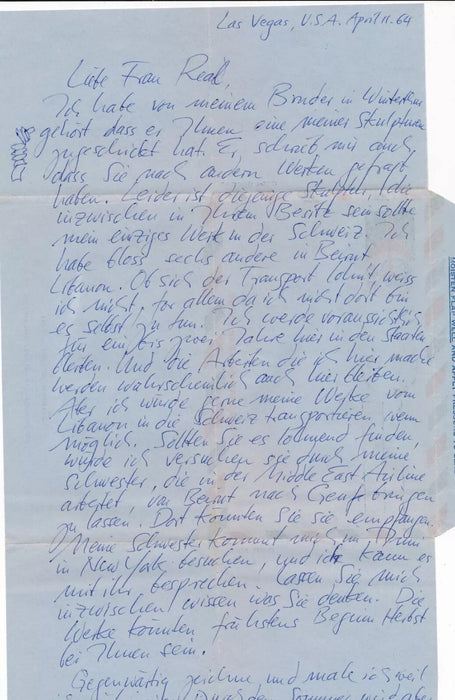 Las Vegas, U.S.A. April 11. 64
Liebe Frau Real,
Ich habe von meinem Bruder in Winterthur
gehört dass er Ihnen eine meiner Skulpturen
zugeschickt hat. Er schrieb mir auch,
dass Sie nach andern Werken gefragt
haben. Leider ist diejenige Skulptur, die
inzwischen in Ihrem Besitz sein sollte
mein einziges Werk in der Schweiz. Ich
habe bloss sechs andere in Beirut
Libanon. Ob sich der Transport lohnt weiss
ich nicht, for allem da ich nicht dort bin
es selbst zu tun. Ich werde voraussichtlich
für ein bis zwei Jahre hier in den Staaten
bleiben. Und die Arbeiten die ich hier mache
werden wahrscheinlich auch hier bleiben.
Aber ich würde gerne meine Werke vom
Libanon in die Schweiz transportieren wenn
möglich. Sollten Sie es lohnend finden,
würde ich versuchen sie durch meine
Schwester, die in der Middle East Airline
arbeitet, von Beirut nach Genf bringen
zu lassen. Dort könnten Sie sie empfangen.
Meine Schwester kommt mich im Juni
in New York besuchen, und ich kann es
mit ihr besprechen. Lassen Sie mich
inzwischen wissen was Sie denken. Die
Werke könnten frühstens Beginn Herbst
bei Ihnen sein.
Gegenwärtig zeichne und male ich weil